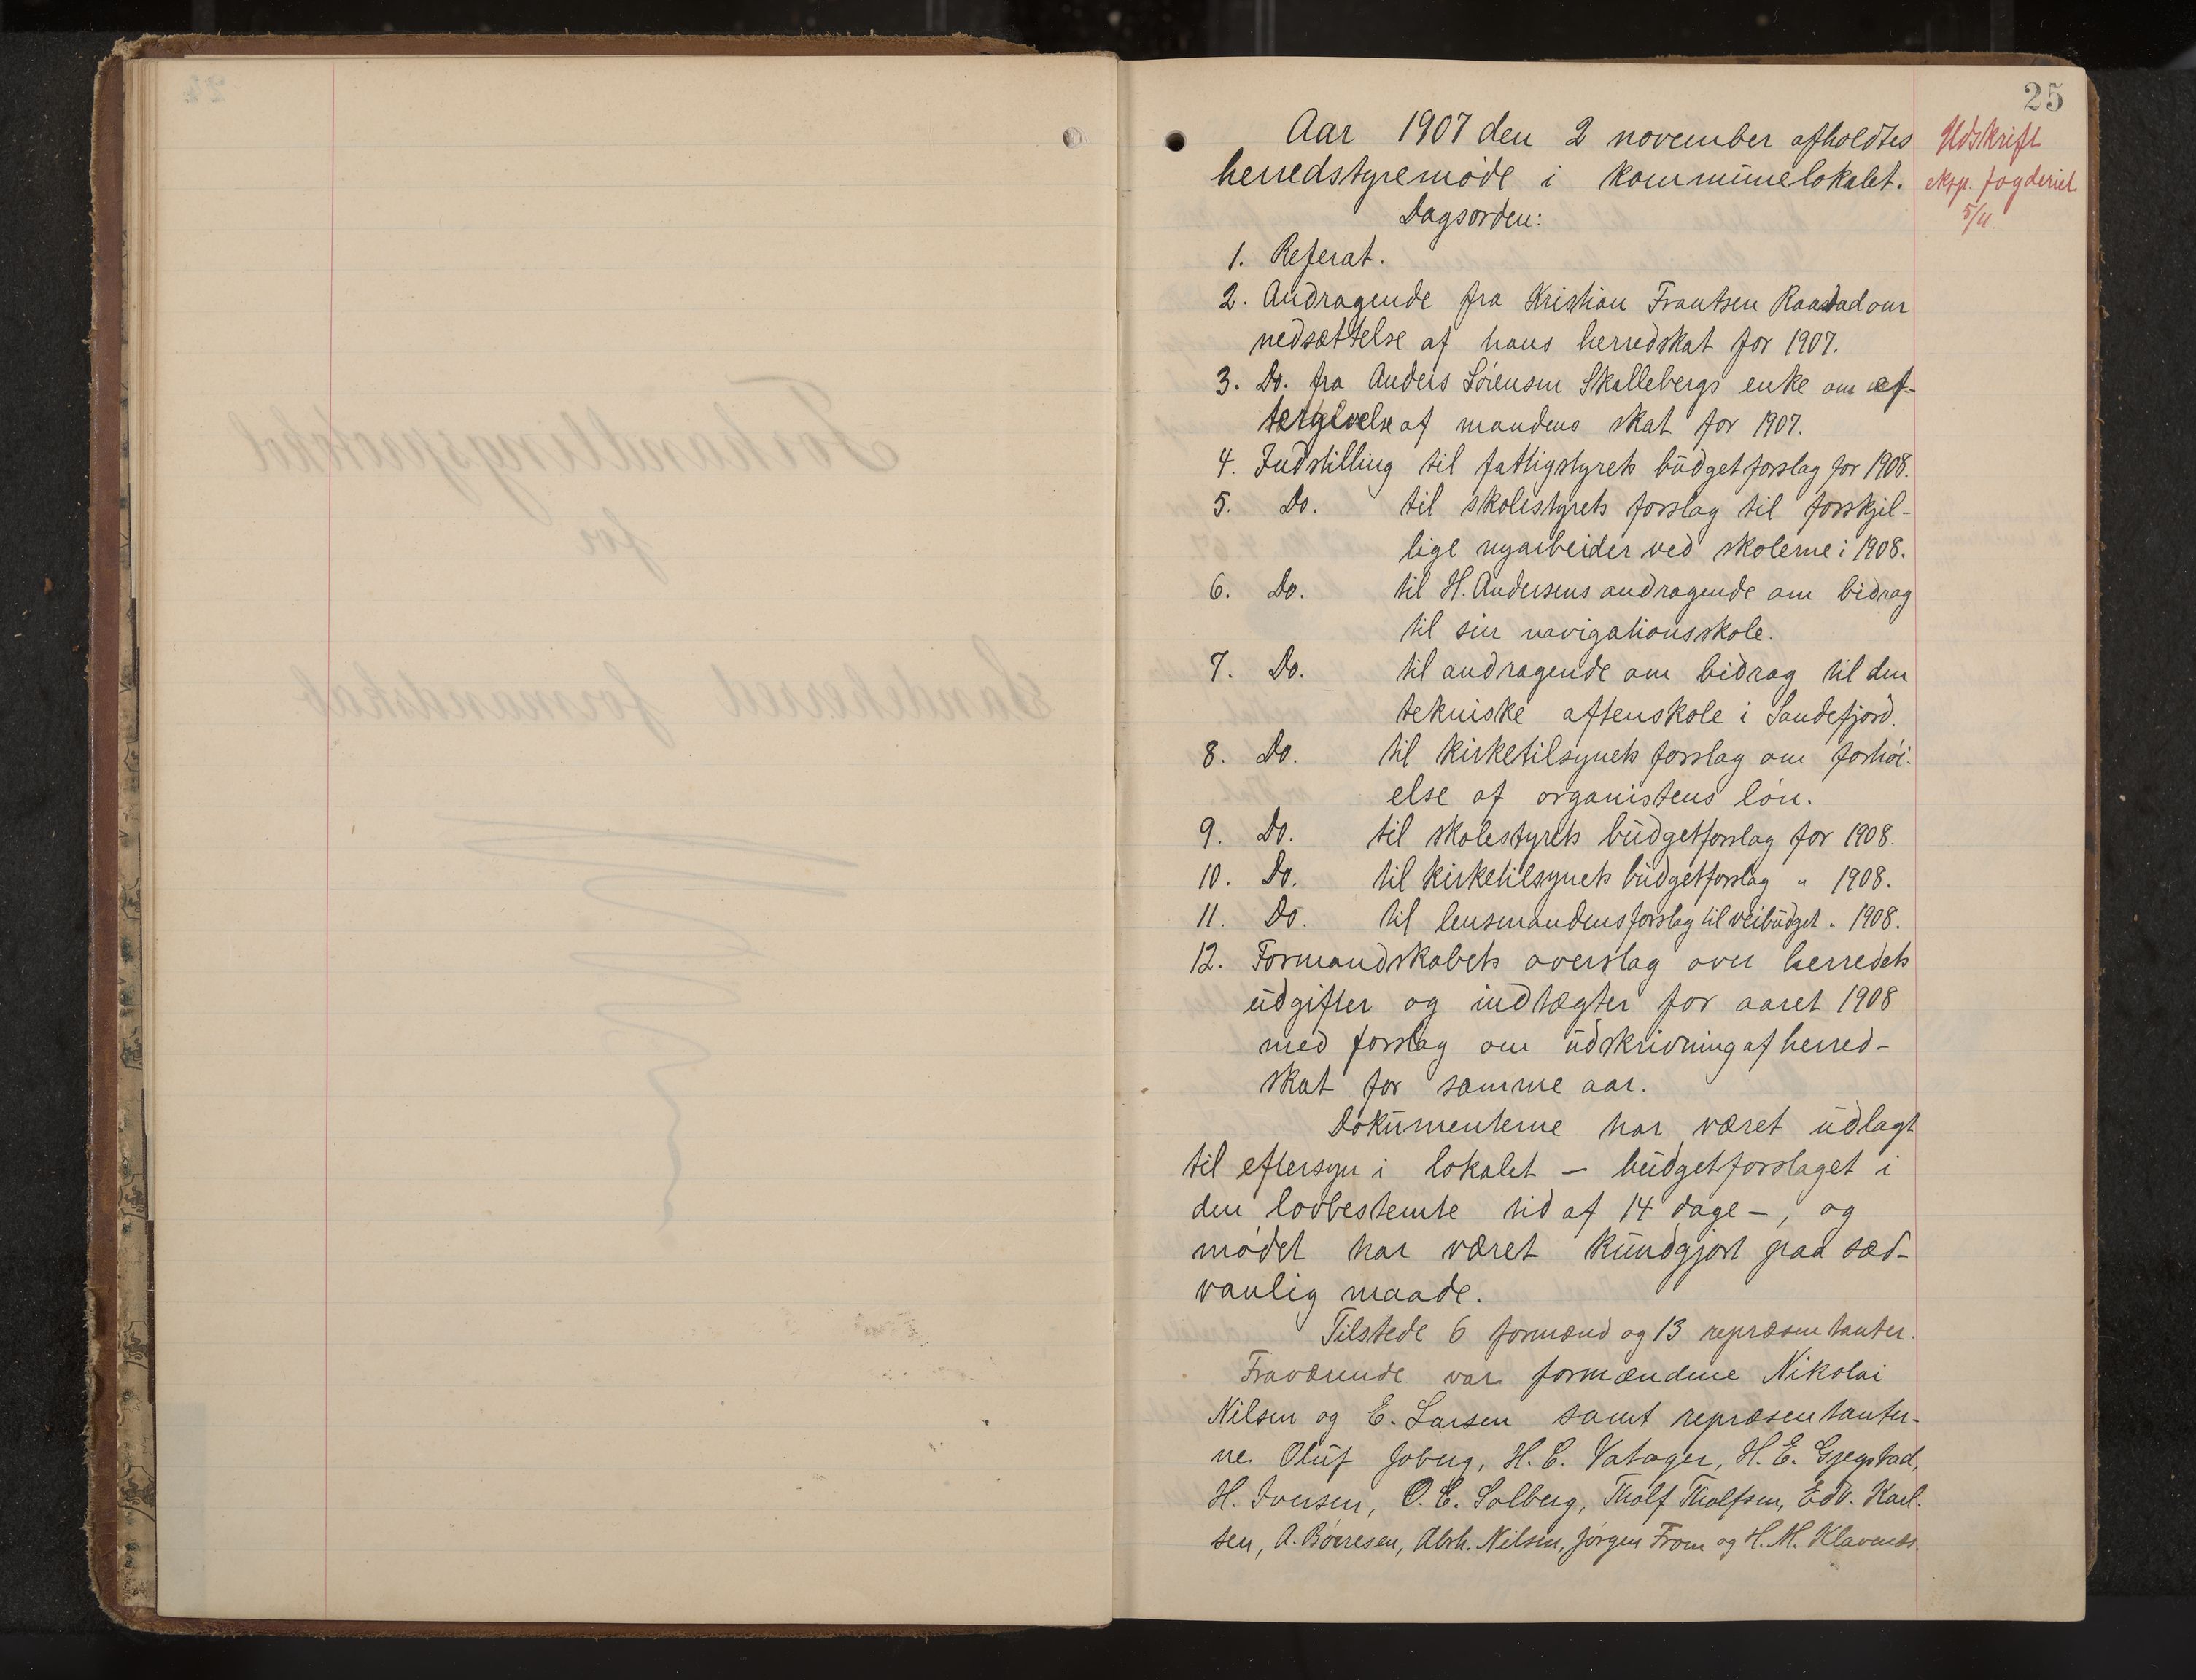 25
Aar 1907 den 2 november afholdtes
herredstyremøde i kommunelokalet.
Udskrift
eksp. fogderiet
5/11.
Dagsorden:
1. Referat.
2. Andragende fra Kristian Frantsen Raastad om
nedsættelse af hans herredskat for 1907.
3. Do. fra Anders Sørensen Skallebergs enke om ef-
tergivelse af mandens skat for 1907.
4. Indstilling til fattigstyrets budgetforslag for 1908.
5. Do. til skolestyrets forslag til forskjel-
lige nyarbeider ved skolerne i 1908.
6. Do. til H. Andersens andragende om bidrag
til sin navigationsskole.
7. Do. til andragende om bidrag til den
tekniske aftenskole i Sandefjord.
8. Do. til kirketilsynets forslag om forhøi-
else af organistens løn.
9. Do. til skolestyrets budgetforslag for 1908.
10. Do. til kirketilsynets budgetforslag " 1908.
11. Do. til lensmandens forslag til veibudget " 1908.
12. Formandskabets overslag over herredets
udgifter og indtægter for aaret 1908
med forslag om udskrivning af herred-
skat for samme aar.
Dokumenterne har været udlagt
til eftersyn i lokalet — budgetforslaget i
den lovbestemte tid af 14 dage —, og
mødet har været kundgjort paa sæd-
vanlig maade.
Tilstede 6 formænd og 13 repræsentanter.
Fraværende var formændene Nikolai
Nilsen og E. Larsen samt repræsentanter-
ne Oluf Joberg, H. C. Vatager, H. E. Gjegstad,
H. Iversen, O. C. Solberg, Tholf Tholfsen, Edv. Karl-
sen, A. Børresen, Abrh. Nilsen, Jørgen From og H. M. Klavenæs.
Forhandlingsprotokol
for
Sandeherred formandskab